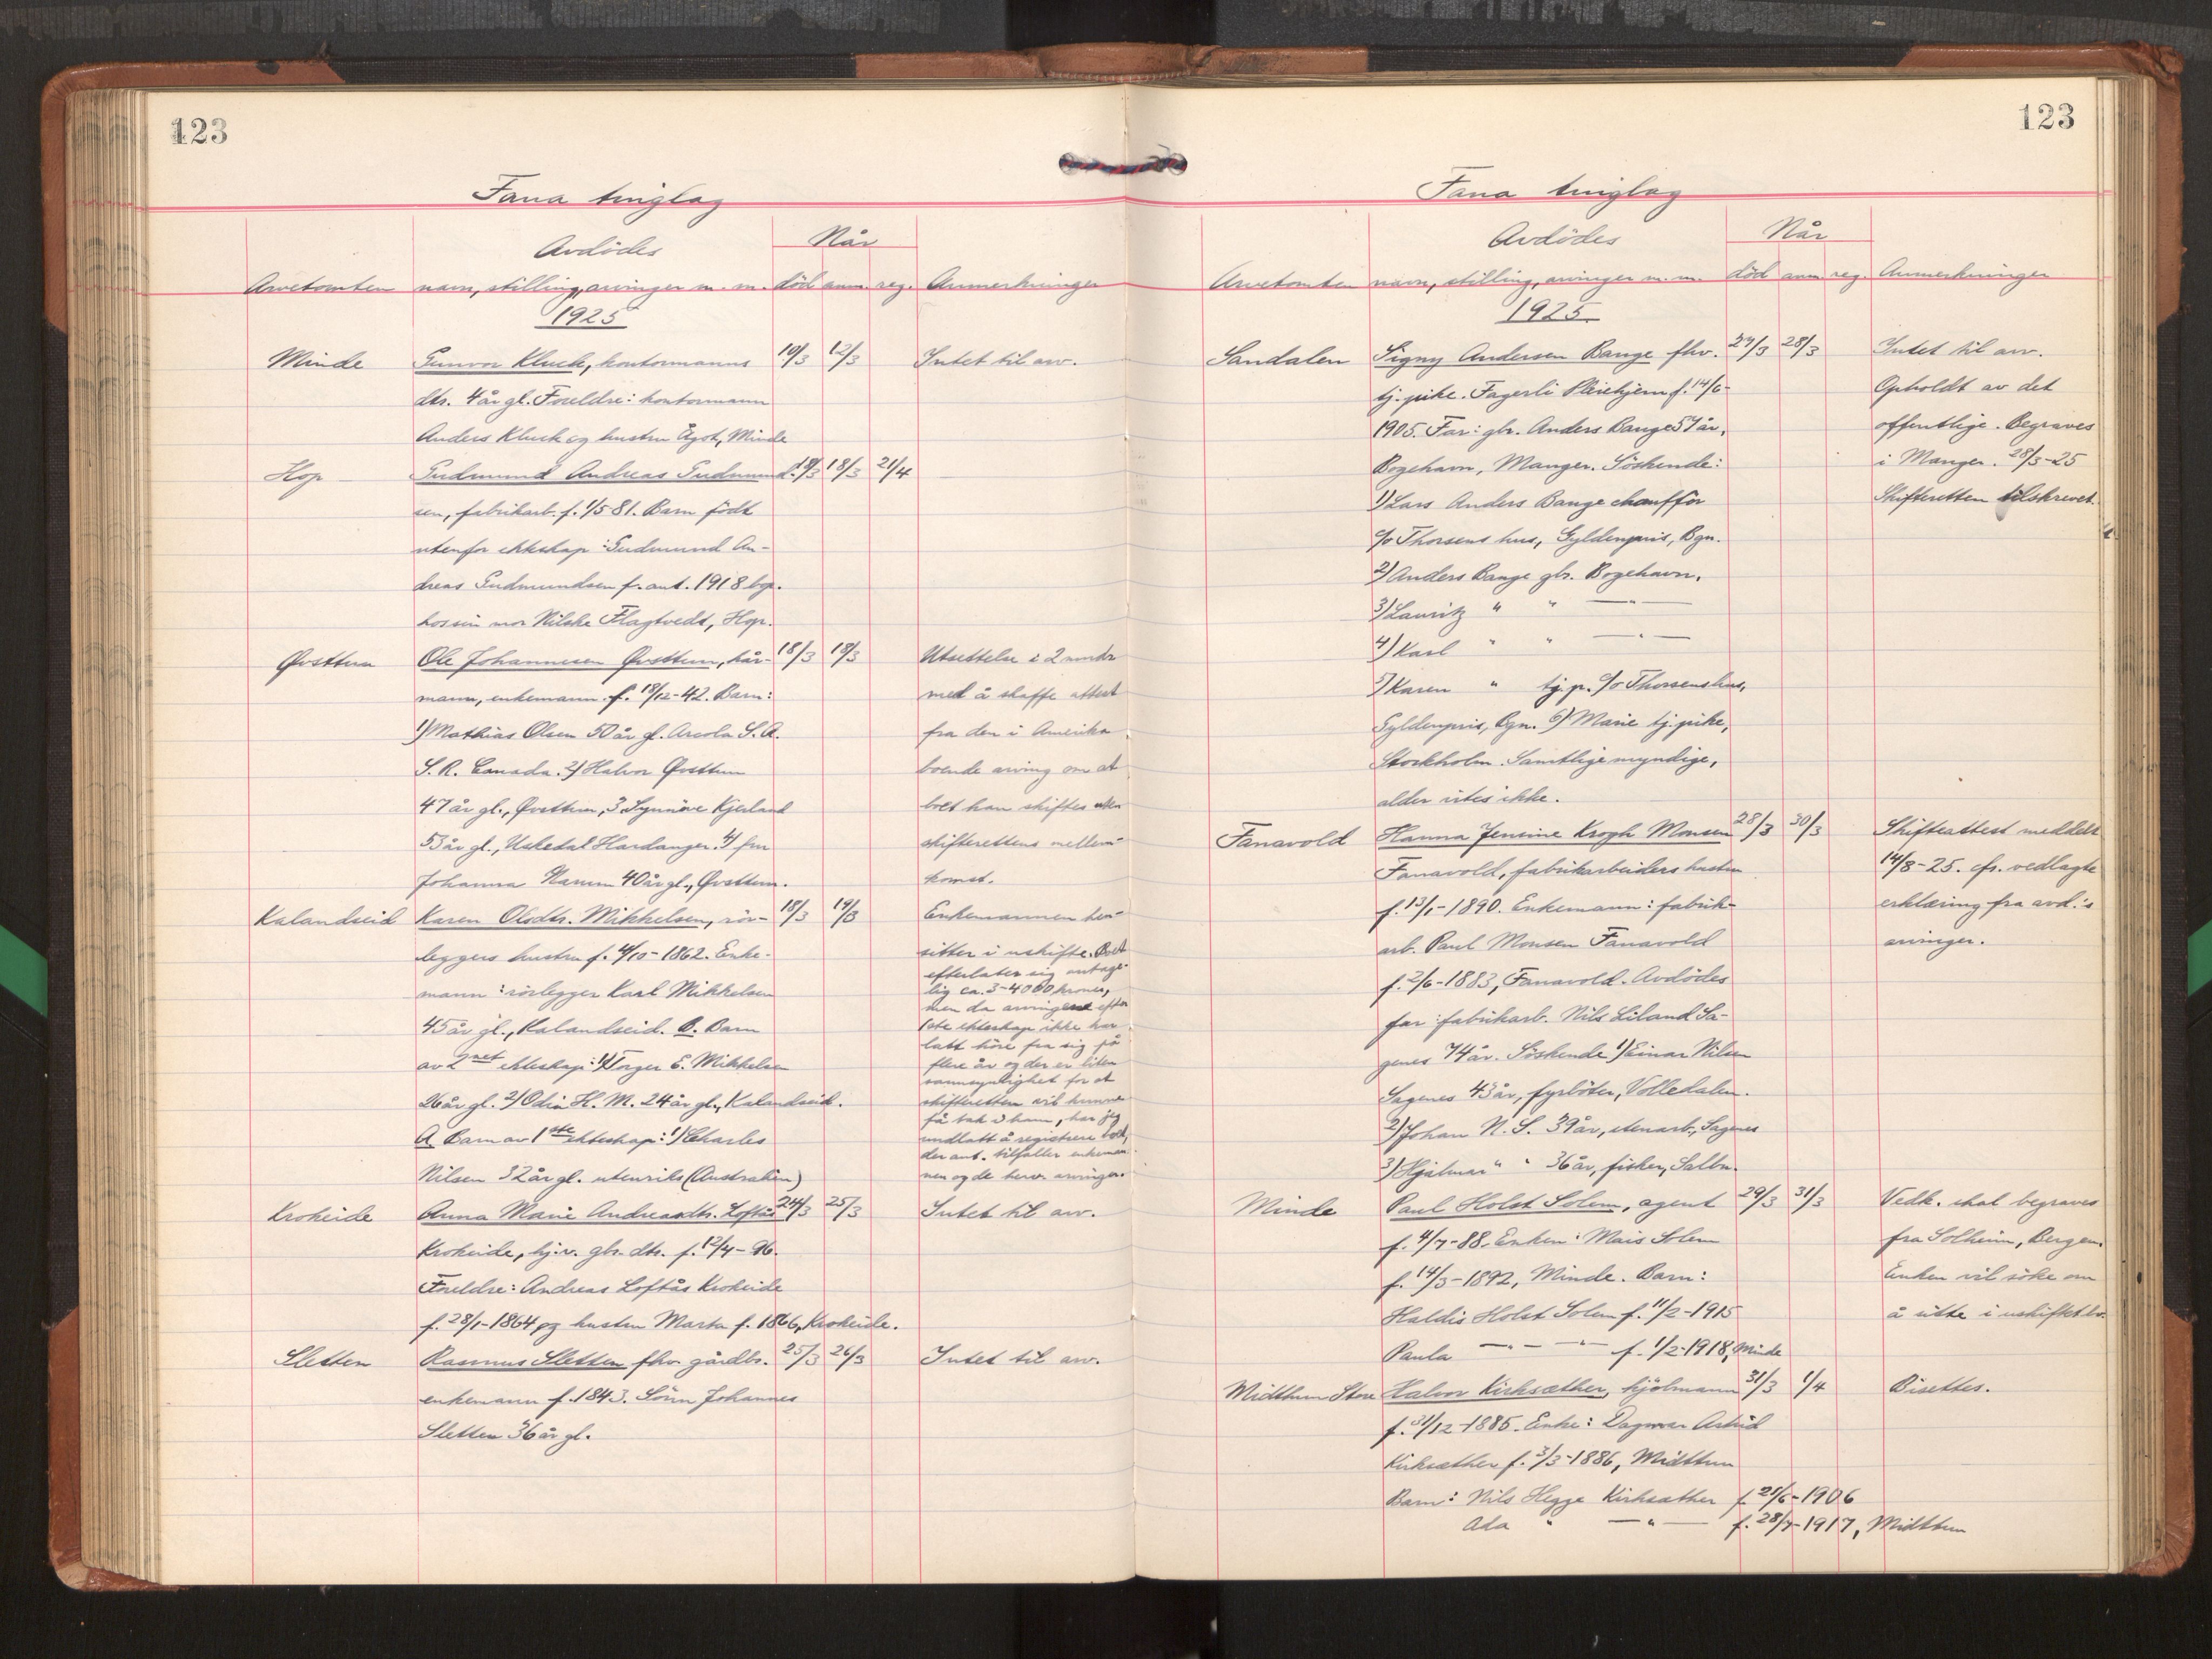 123
Fana tinglag
Avdödes
Når
Arvetomten navn, stilling, arvinger m. m. död anm. reg. Anmerkninger
1925
Minde Gunvor Kluck, kontormanns 10/3 12/3 Intet til arv.
dtr. 4 år gl. Foreldre: kontormann
Anders Kluck og hustru Ågot, Minde
Hop Gudmund Andreas Gudmund- 18/3 21/4
sen, fabrikarb. f. 1/5 81. Barn födt
utenfor ekteskap: Gudmund An-
dreas Gudmundsen f. ant. 1918 bop.
hos sin mor Nilske Flagtvedt, Hop.
Øvsttun Ole Johannesen Øvsttun, kår- 18/3 19/3 Utsettelse i 2 mndr
mann, enkemann f. 18/12-42. Barn: med å skaffe attest
1) Mathias Olsen 50 år gl. Arcola S. A. fra den i Amerika
S. R. Canada. 2) Halvor Øvsttun boende arving om at
47 år gl., Øvsttun, 3 Synnöve Kjerland boet kan skiftes uten
53 år gl., Uskedal Hardanger. 4) fru skifterettens mellem-
Johanna Hamm 40 år gl., Øvsttun. komst.
Kalandseid Karen Olsdtr. Mikkelsen, rör- 18/3 19/3 Enkemannen hen-
leggers hustru f. 4/10-1862. Enke- sitter i uskifte. Boet
efterlater sig antage-
mann: rörlegger Karl Mikkelsen lig ca. 3-4000 kroner,
men da arvingene efter
45 år gl., Kalandseid. B. Barn 1ste ekteskap ikke har
latt höre fra sig på
av 2net ekteskap: 1) Torger E. Mikkelsen flere år og der er liten
sannsynlighet for at
26 år gl. 2) Odin H. M. 24 år gl., Kalandseid. skifteretten vil kunne
få tak i ham, har jeg
A Barn av 1ste ekteskap: 1) Charles undlatt å registrere boet,
der ant. tilfaller enkeman-
Nilsen 32 år gl. utenriks (Australien) nen og de herv. arvinger.
Krokeide Anna Marie Andreasdtr. Loftås 24/3 25/3 Intet til arv.
Krokeide, hj.v. gbr. dtr. f. 12/4-96.
Foreldre: Andreas Loftås Krokeide
f. 28/1-1864 og hustru Marta f. 1866, Krokeide.
Sletten Rasmus Sletten fhv. gårdbr. 25/3 26/3 Intet til arv.
enkemann f. 1843. Sönn Johannes
Sletten 36 år gl.
123
Fana tinglag
Avdödes
Når
Arvetomten navn, stilling, arvinger m. m. död anm. reg. Anmerkninger
1925
Sandalen Signy Andersen Bange fhv. 27/3 28/3 Intet til arv.
tj. pike. Fagerli Pleiehjem f. 14/6- Opholdt av det
1905. Far: gbr. Anders Bange 57 år, offentlige. Begraves
Bogehavn, Manger. Söskende: i Manger. 28/3-25
1) Lars Anders Bange chaufför Skifteretten tilskrevet.
c/o Thorsens hus, Gyldenpris, Bgn.
2) Anders Bange gbr. Bogehavn.
3) Lauritz " " — " —
4) Karl " " — " —
5) Karen " tj. p. c/o Thorsens hus,
Gyldenpris, Bgn. 6) Marie tj. pike,
Stockholm. Samtlige myndige,
alder vites ikke.
Fanavold Hanna Jensine Krogh Monsen 28/3 30/3 Skifteattest meddelt
Fanavold, fabrikarbeiders hustru 14/8-25. cfr. vedlagte
f. 13/1-1890. Enkemann: fabrik- erklæring fra avd.'s
arb. Paul Monsen Fanavold arvinger.
f. 2/6-1883, Fanavold. Avdödes
far: fabrikarb. Nils Liland Sa-
genes 74 år. Söskende 1) Einar Nilsen
Sagenes 43 år, fyrböter, Volledalen.
2) Johan N. S. 39 år, stenarb., Sagenes
3) Hjalmar " " 36 år, fisker, Salbu.
Minde Paul Holst Solem, agent 29/3 31/3 Vedk. skal begraves
f. 4/7-88. Enken: Mais Solem fra Solheim, Bergen.
f. 14/3-1892, Minde. Barn: Enken vil söke om
Haldis Holst Solem f. 11/2-1915 å sitte i uskiftet bo.
Paula — " — " — f. 1/2-1918, Minde
Midttun Store Halvor Kirksæther, hjölmann 31/3 1/4 Bisettes.
f. 31/12-1885. Enke: Dagmar Astrid
Kirksæther f. 3/3-1886, Midttun
Barn: Nils Hegge Kirksæther f. 21/6-1906
Ada " — " — f. 28/7-1917, Midttun